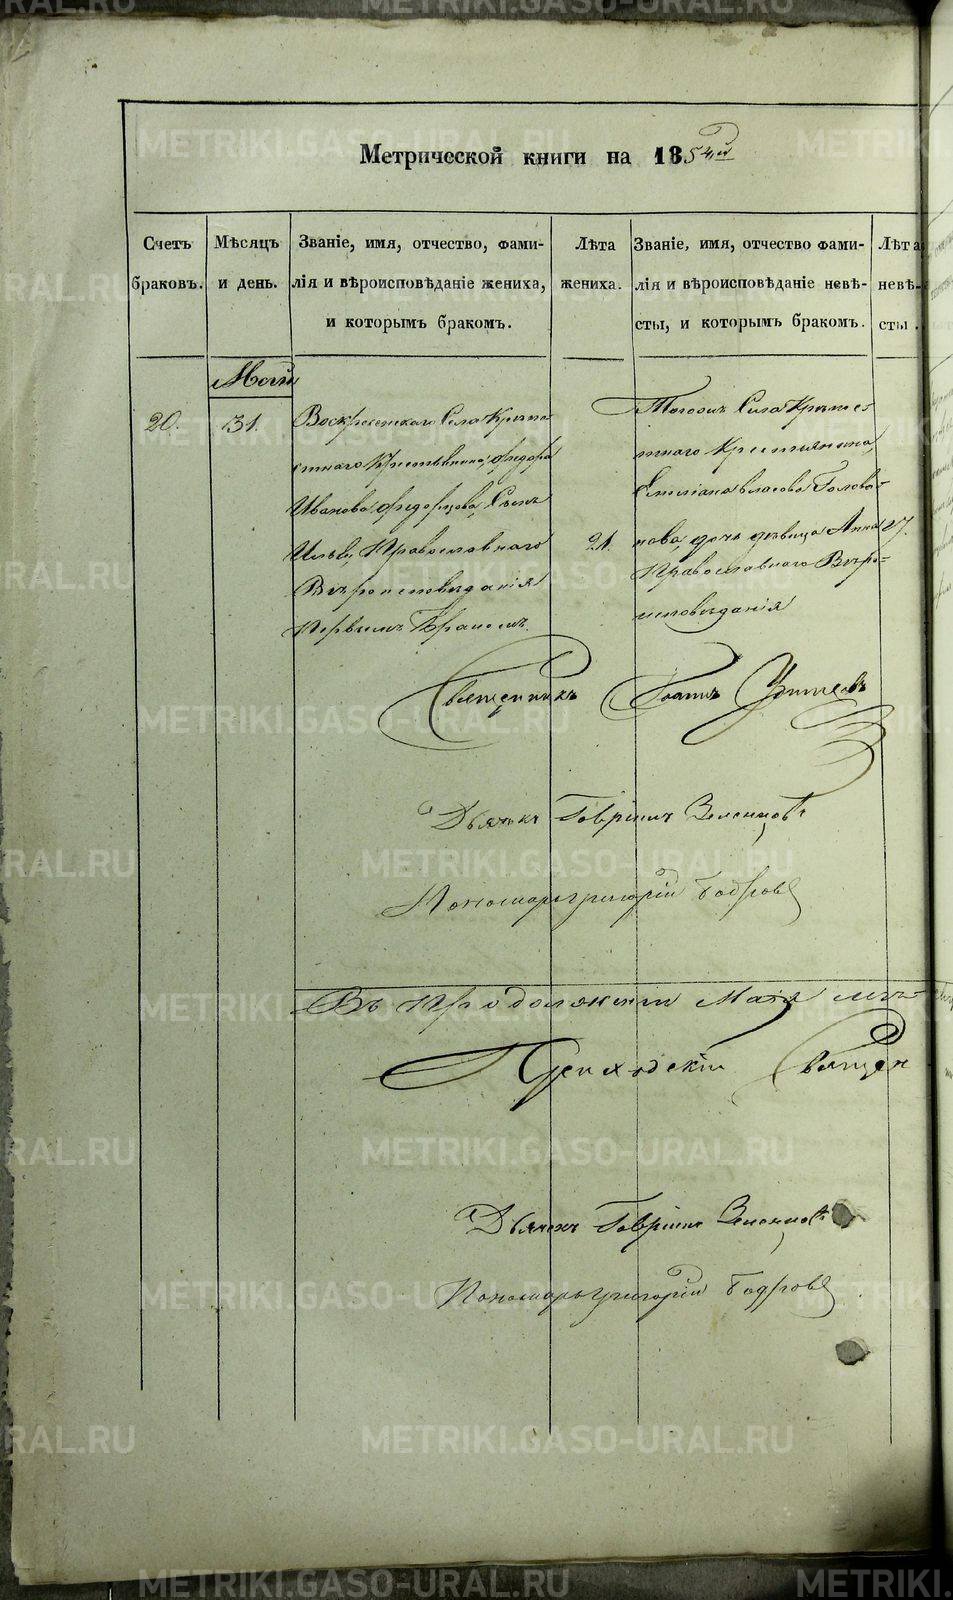 Метрической книги на 1854й
Счетъ браковъ.
Мѣсяцъ и день.
Званіе, имя, отчество, фами-
лія и вѣроисповѣданіе жениха,
и которымъ бракомъ.
Лѣта жениха.
Званіе, имя, отчество фами-
лія и вѣроисповѣданіе невѣ-
сты, и которымъ бракомъ.
Лѣта невѣ-
сты.
Май
20.
31.
Воскресенскаго Села Крѣпо
стнаго Крестьянина, Федора
Иванова Федорцова, Сынъ
Илья, Православнаго
Вѣроисповѣданія
Первымъ Бракомъ.
21.
Тогожъ Села Крѣпост
наго Крестьянина,
Емилiана Власова Голова-
нова, дочь дѣвица Анна
Православнаго Вѣро-
исповѣданія
27.
Священникъ Іоаннъ
Дьячекъ Гавріилъ Зеленцовъ
Пономарь Григорій Бодровъ
Въ Продолженіи Мая мѣ
Приходскій Священ
Дьячекъ Гавріилъ Зеленцовъ
Пономарь Григорій Бодровъ
METRIKI.GASO-URAL.RU